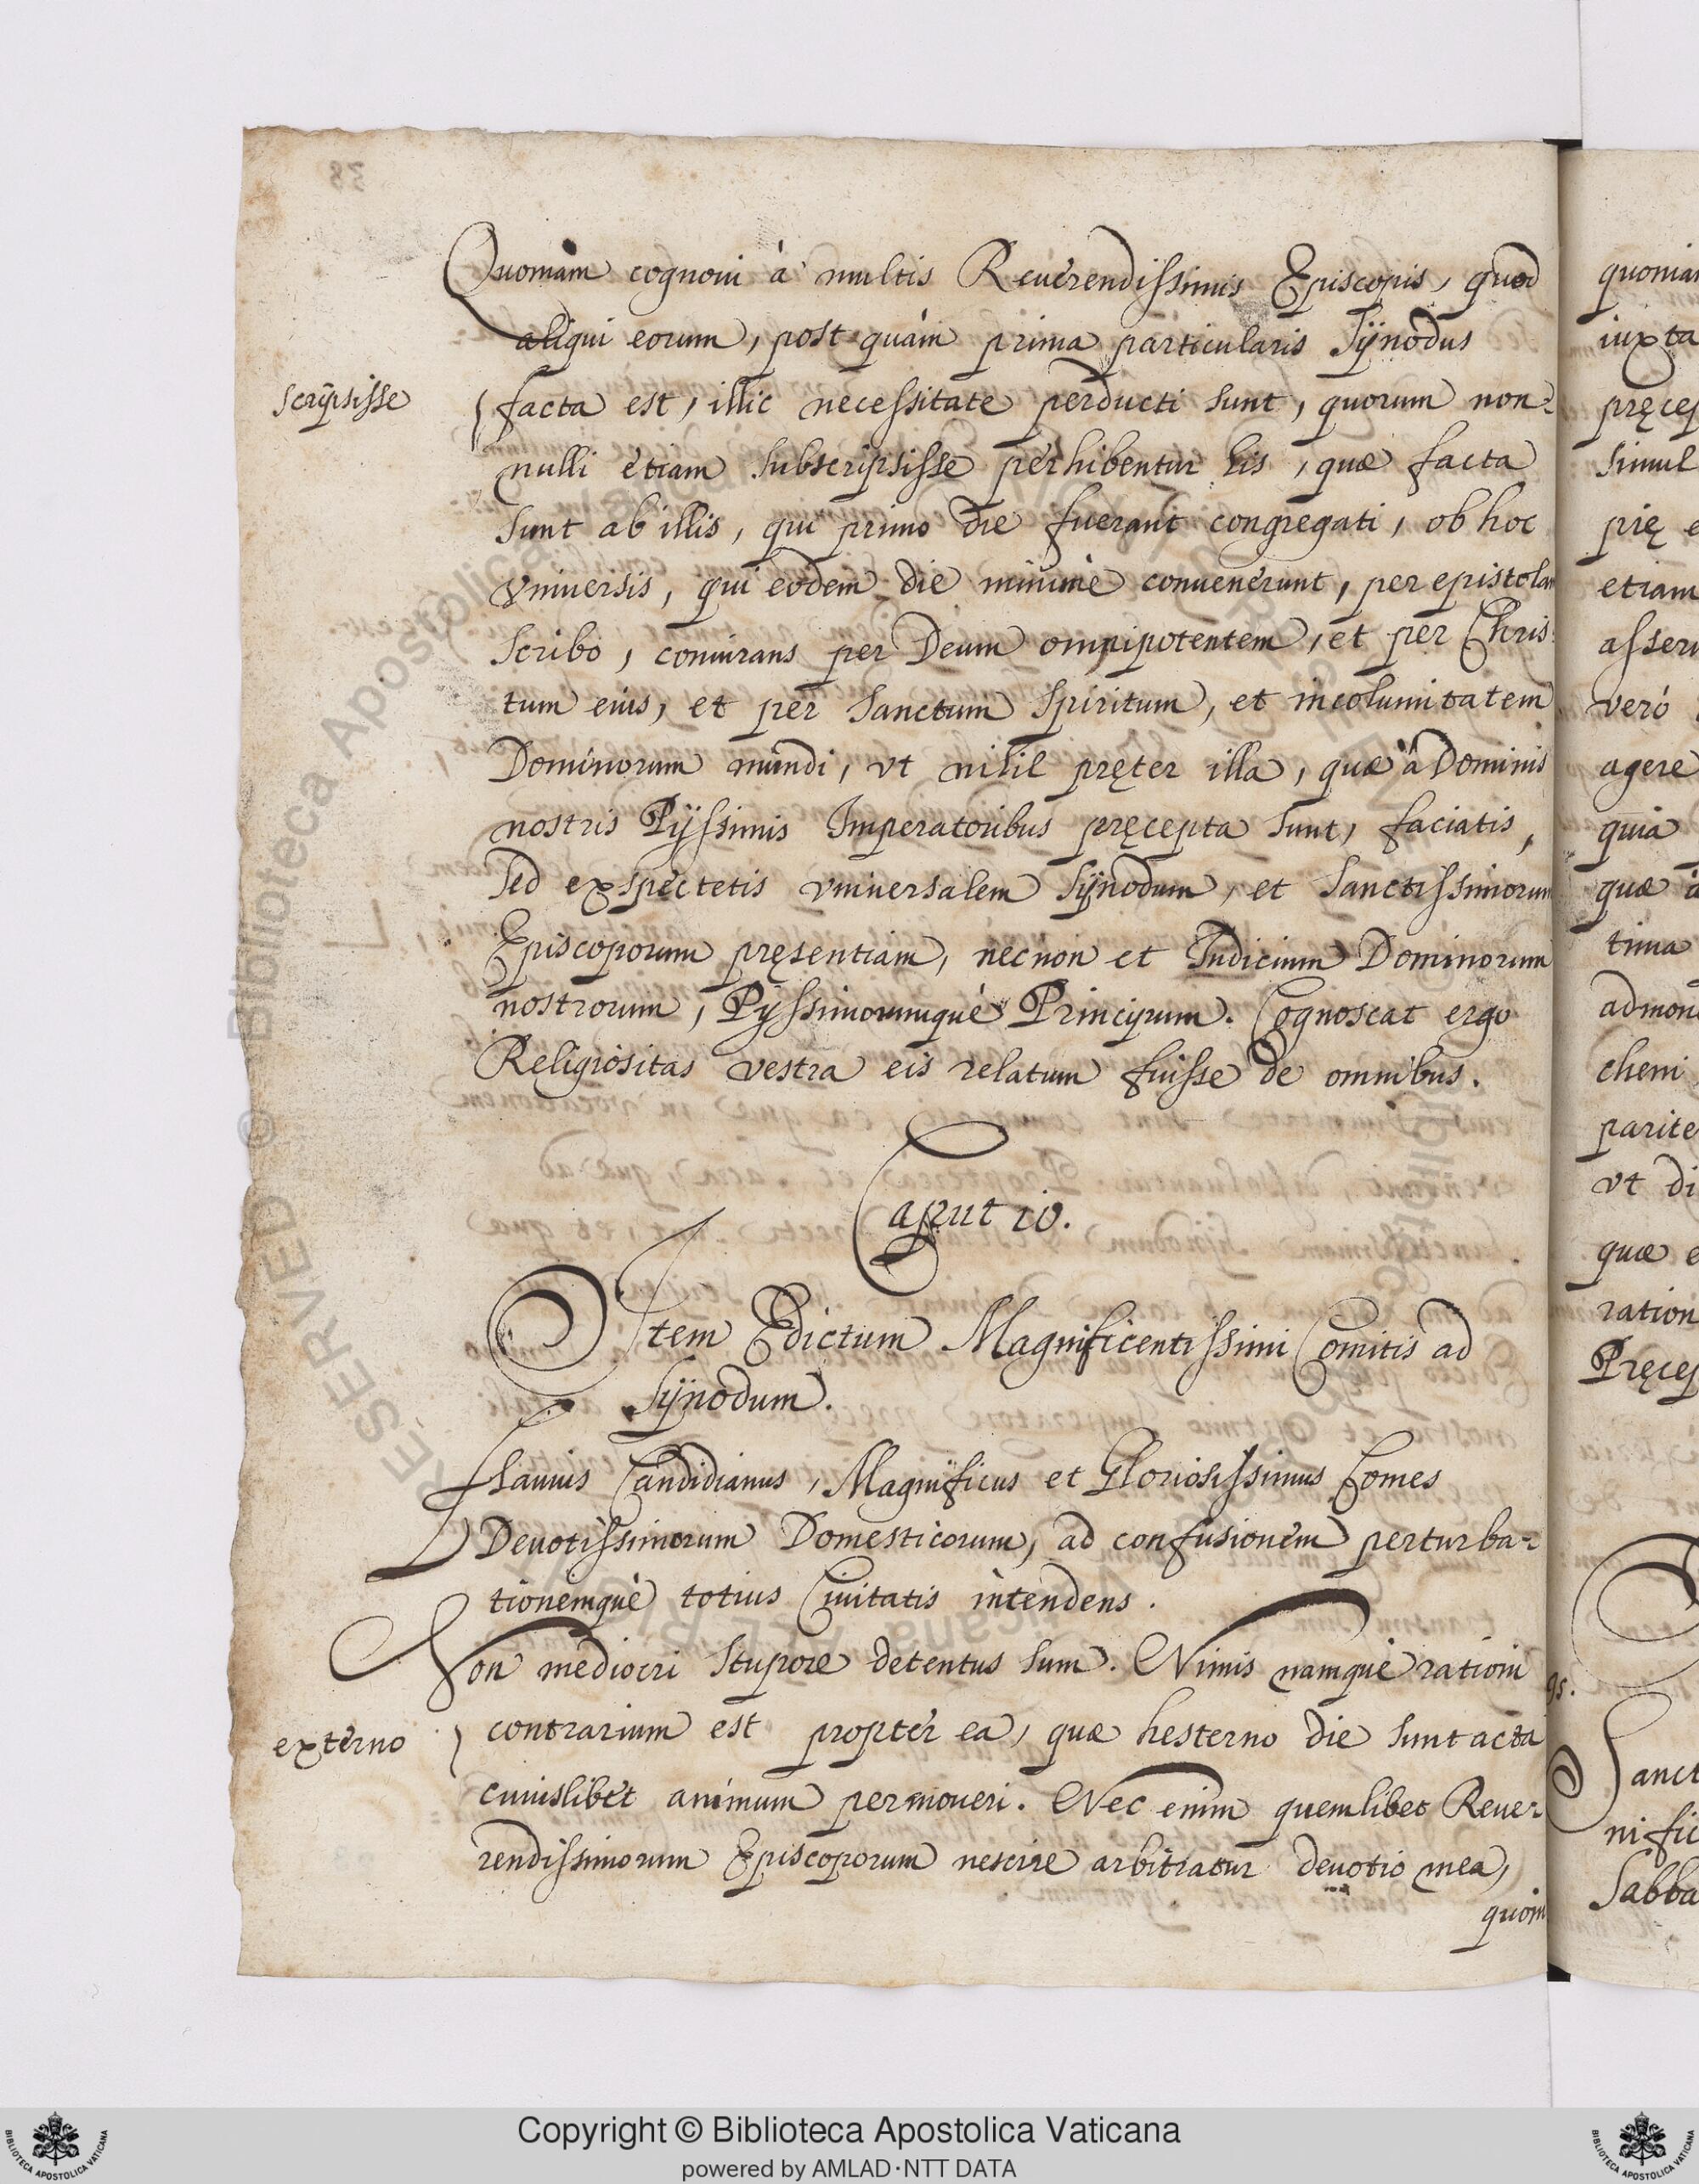 Quoniam cognoui à multis Reuerendissimis Episcopis, quod
aliqui eorum, post quàm prima particularis Sÿnodus
scripsisse
facta est, illic necessitate perducti sunt, quorum non-
nulli etiam subscripsisse perhibentur his, quæ facta
sunt ab illis, qui primo die fuerant congregati, ob hoc
vniuersis, qui eodem die minimè conuenerunt, per epistolam
scribo, coniurans per Deum omnipotentem, et per Chris-
tum eius, et per Sanctum Spiritum, et incolumitatem
Dominorum mundi, vt nihil pręter illa, quæ à Dominis
nostris Pijssimis Imperatoribus pręcepta sunt, faciatis,
sed exspectetis vniuersalem Sÿnodum, et Sanctissimorum
Episcoporum pręsentiam, necnon et Iudicium Dominorum
nostrorum, Pijssimorumquè Principum. Cognoscat ergo
Religiositas vestra eis relatum fuisse de omnibus.
Caput 10.
Item Edictum Magnificentissimi Comitis ad
Sÿnodum.
Flauius Candidianus, Magnificus et Gloriosissimus Comes
Deuotissimorum Domesticorum, ad confusionem perturba-
tionemquè totius Ciuitatis intendens.
Non mediocri stupore detentus sum. Nimis namquè rationi
externo
contrarium est propter ea, quæ hesterno die sunt acta
cuiuslibet animum permoueri. Nec enim quemlibet Reue-
rendissimorum Episcoporum nescire arbitratur deuotio mea,
quoni
quoniam
iuxta
pręcep
simul
pię e
etiam
asseru
verò
agere
quia
quæ à
tima
admon
cheni
parite
vt di
quæ e
ration
Pręcep
Sanct
nific
Sabba
Copyright © Biblioteca Apostolica Vaticana
powered by AMLAD·NTT DATA
BIBLIOTECA APOSTOLICA VATICANA
BIBLIOTECA APOSTOLICA VATICANA